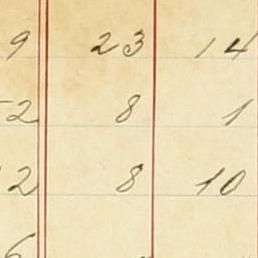 9 23 14
52 8 1
2 8 10
6